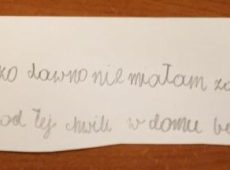 dawno nie miałam
od tej chwili w domu